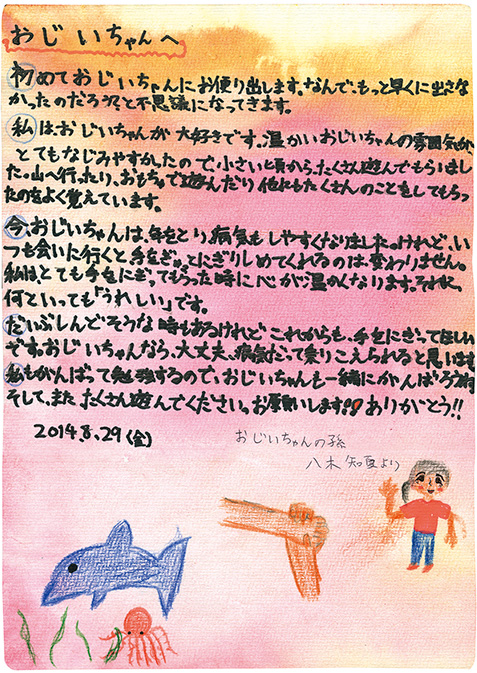 おじいちゃんへ
初めておじいちゃんにお便り出します。なんで、もっと早くに出さな
かったのだろう?と不思議になってきます。
私はおじいちゃんが大好きです。温かいおじいちゃんの雰囲気が、
とてもなじみやすかったので、小さい頃から、たくさん遊んでもらいまし
た。山へ行ったり、おもちゃで遊んだり他にもたくさんのことをしてもらっ
たのをよく覚えています。
今、おじいちゃんは、年をとり病気もしやすくなりました。けれど、い
つも会いに行くと手をぎゅっとにぎりしめてくれるのは、変わりません。
私は、とても手をにぎってもらった時に心が温かくなります。それに、
何といっても「うれしい」です。
だいぶしんどそうな時もあるけれどこれからも、手をにぎってほしい
です。おじいちゃんなら、大丈夫、病気だって乗りこえられると思います
私もがんばって勉強するので、おじいちゃんも一緒にがんばろうね
そして、またたくさん遊んでください。お願いします!!ありがとう!!
2014.8.29(金)
おじいちゃんの孫
八木 知夏より